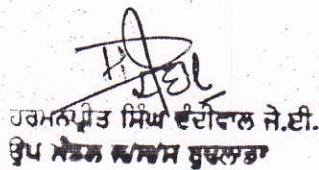 ਹਰਮਨਪ੍ਰੀਤ ਸਿੰਘ ਵੰਦੀਵਾਲ ਜੇ.ਈ.
ਉਪ ਮੰਡਲ ਬੁਢਲਾਡਾ